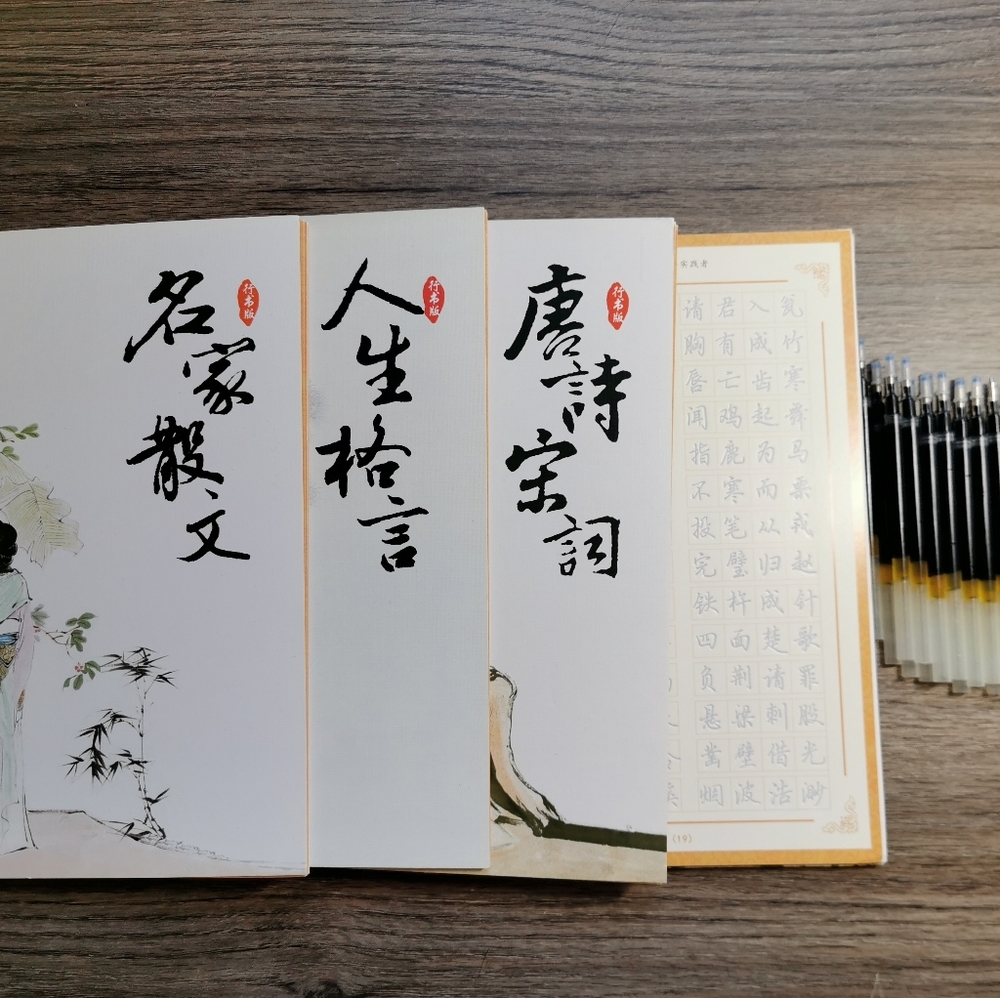 名家散文
行书版
人生格言
行书版
唐詩宋詞
行书版
实践者
请君入瓮
胸有成竹
唇亡齿寒
闻鸡起舞
指鹿为马
不寒而栗
投笔从戎
完璧归赵
铁杵成针
四面楚歌
负荆请罪
悬梁刺股
凿壁借光
烟波浩渺
(19)